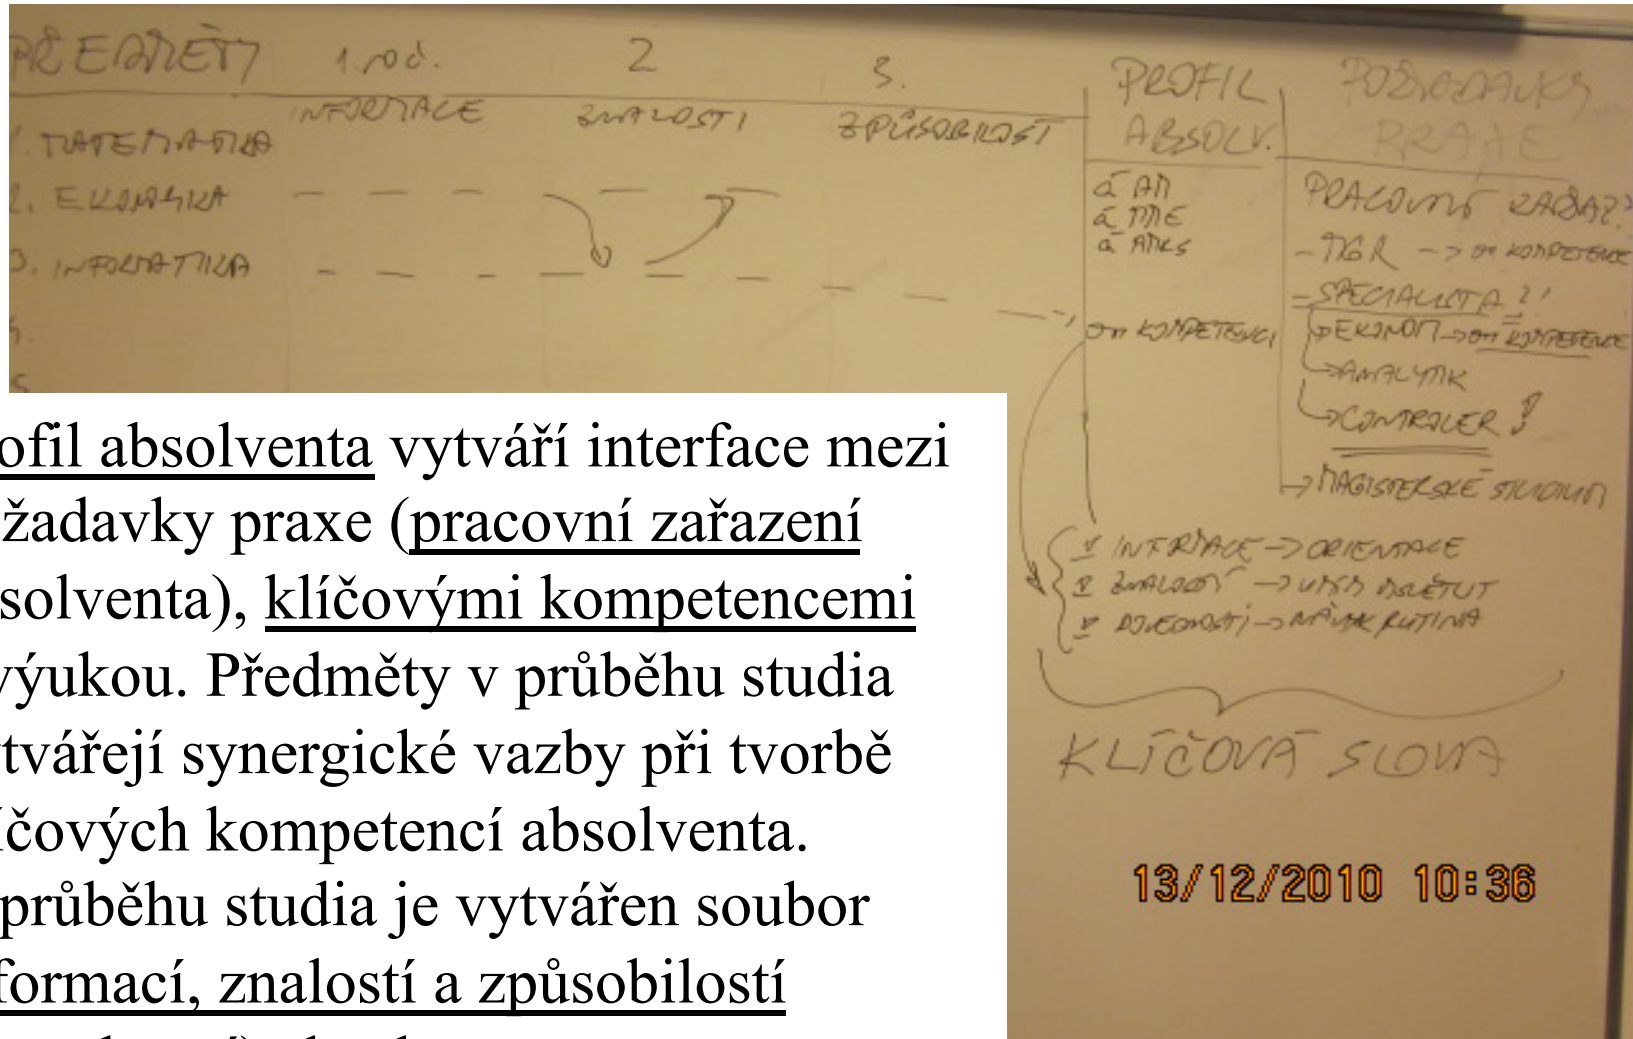 PŘEDMĚTY 1. roč. 2 3. PROFIL ABSOLV. POŽADAVKY PRAXE
INFORMACE ZNALOSTI ZPŮSOBILOSTI
1. MATEMATIKA
2. EKONOMIKA
3. INFORMATIKA
á AM
á MME
á
KOMPETENCÍ
PRACOVNÍ ZAŘAZ.
- MGR -> KOMPETENCE
- SPECIALISTA ?!
-> EKONOM -> KOMPETENCE
-> ANALYTIK
-> CONTROLER !
-> MAGISTERSKÉ STUDIUM
INFORMACE -> ORIENTACE
ZNALOSTI -> UMÍM
DOVEDNOSTI -> RUTINA
KLÍČOVÁ SLOVA
13/12/2010 10:36
ofil absolventa vytváří interface mezi
žadavky praxe (pracovní zařazení
solventa), klíčovými kompetencemi
výukou. Předměty v průběhu studia
tvářejí synergické vazby při tvorbě
íčových kompetencí absolventa.
průběhu studia je vytvářen soubor
formací, znalostí a způsobilostí